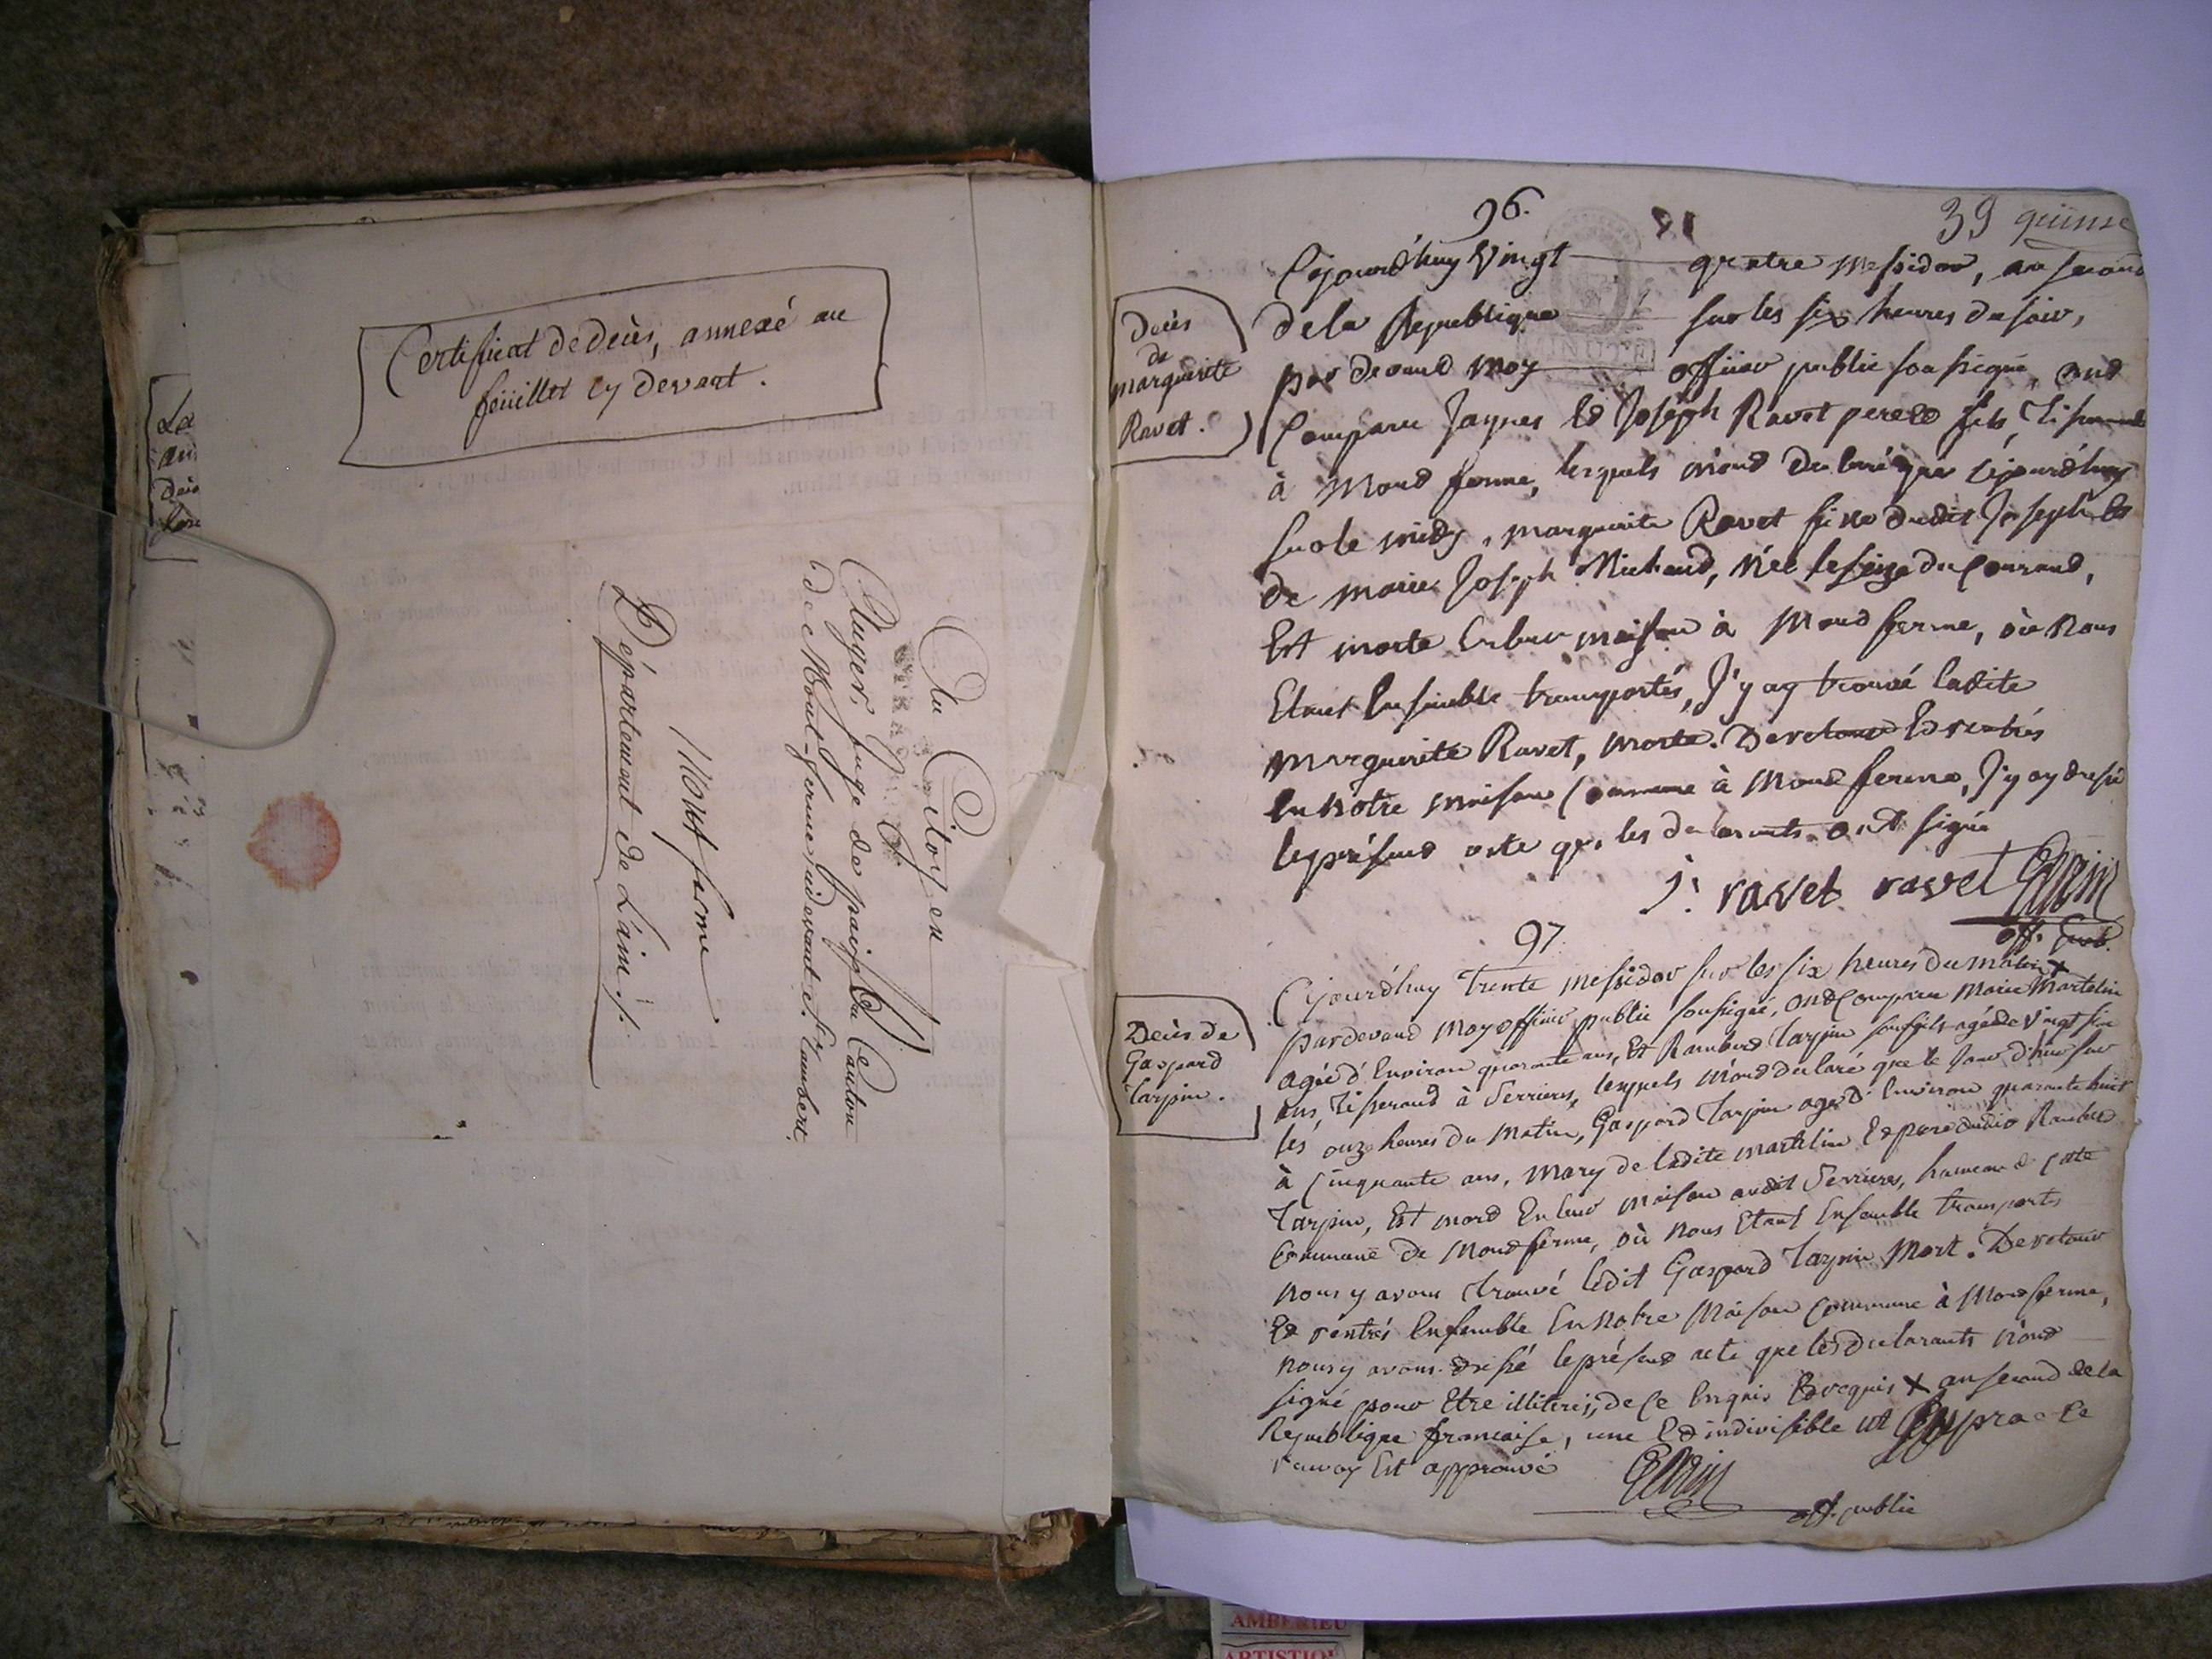 Certificat de décès, annexé au
feüillet cy devant.
Au Citoyen
Auger, Juge de paix du Canton
de Mont-ferme, cidevant St. Rambert
Mont ferme
Département de L'ain
96.
39 quinse
Cejourd'huy Vingt quatre Messidor, an second
de la Republique sur les six heures du soir,
par devand moy officier public soussigné, ond
Comparu Jaques Ed Joseph Ravet pere Ed fils,
à Mond ferme, lesquels m'ond declaré que cejourd'huy
sur le midy, marguerite Ravet fille dudit Joseph Ed
de marie Joseph Michaud, Née le seize du Courand,
Est morte En leur maison à Mond ferme, où Nous
Etant Ensemble transportés, J'y ay trouvé ladite
Marguerite Ravet, morte. De retour Ed rentrés
En Notre maison Commune à Mond ferme, J'y ay dressé
le présend acte que les declarants ont signé
J. ravet ravet
off. pub.
Décès
de
marguerite
Ravet.
97.
Cejourd'huy Trente Messidor sur les six heures du matin X
pardevand Moy officier public soussigné, ond Comparu Marie Martelin
agée d'Environ quarante ans, Et Rambert Tarpin son fils agé de Vingt six
ans, Tisserand à Serrieres, lesquels m'ond declaré que le Jour d'hier sur
les onze heures du Matin, Gaspard Tarpin agé d'Environ quarante huit
à Cinquante ans, Mary de ladite martelin Ed pere dudit Rambert
Tarpin, Est mord En leur Maison audit Serrieres, hameau de cette
Commune de Mondferme, où nous Etant Ensemble transportés
nous y avons trouvé ledit Gaspard Tarpin Mort. De retour
Ed rentrés Ensemble En Notre Maison Commune à Mondferme,
nous y avons dressé le présend acte que les declarants n'ond
signé pour Etre illiterés, de ce Enquis Ed requis X an second de la
Republique francaise, une Ed indivisible
renvoy Est approuvé
off. public
Décès de
Gaspard
Tarpin.
MINUTE
AMBERIEU